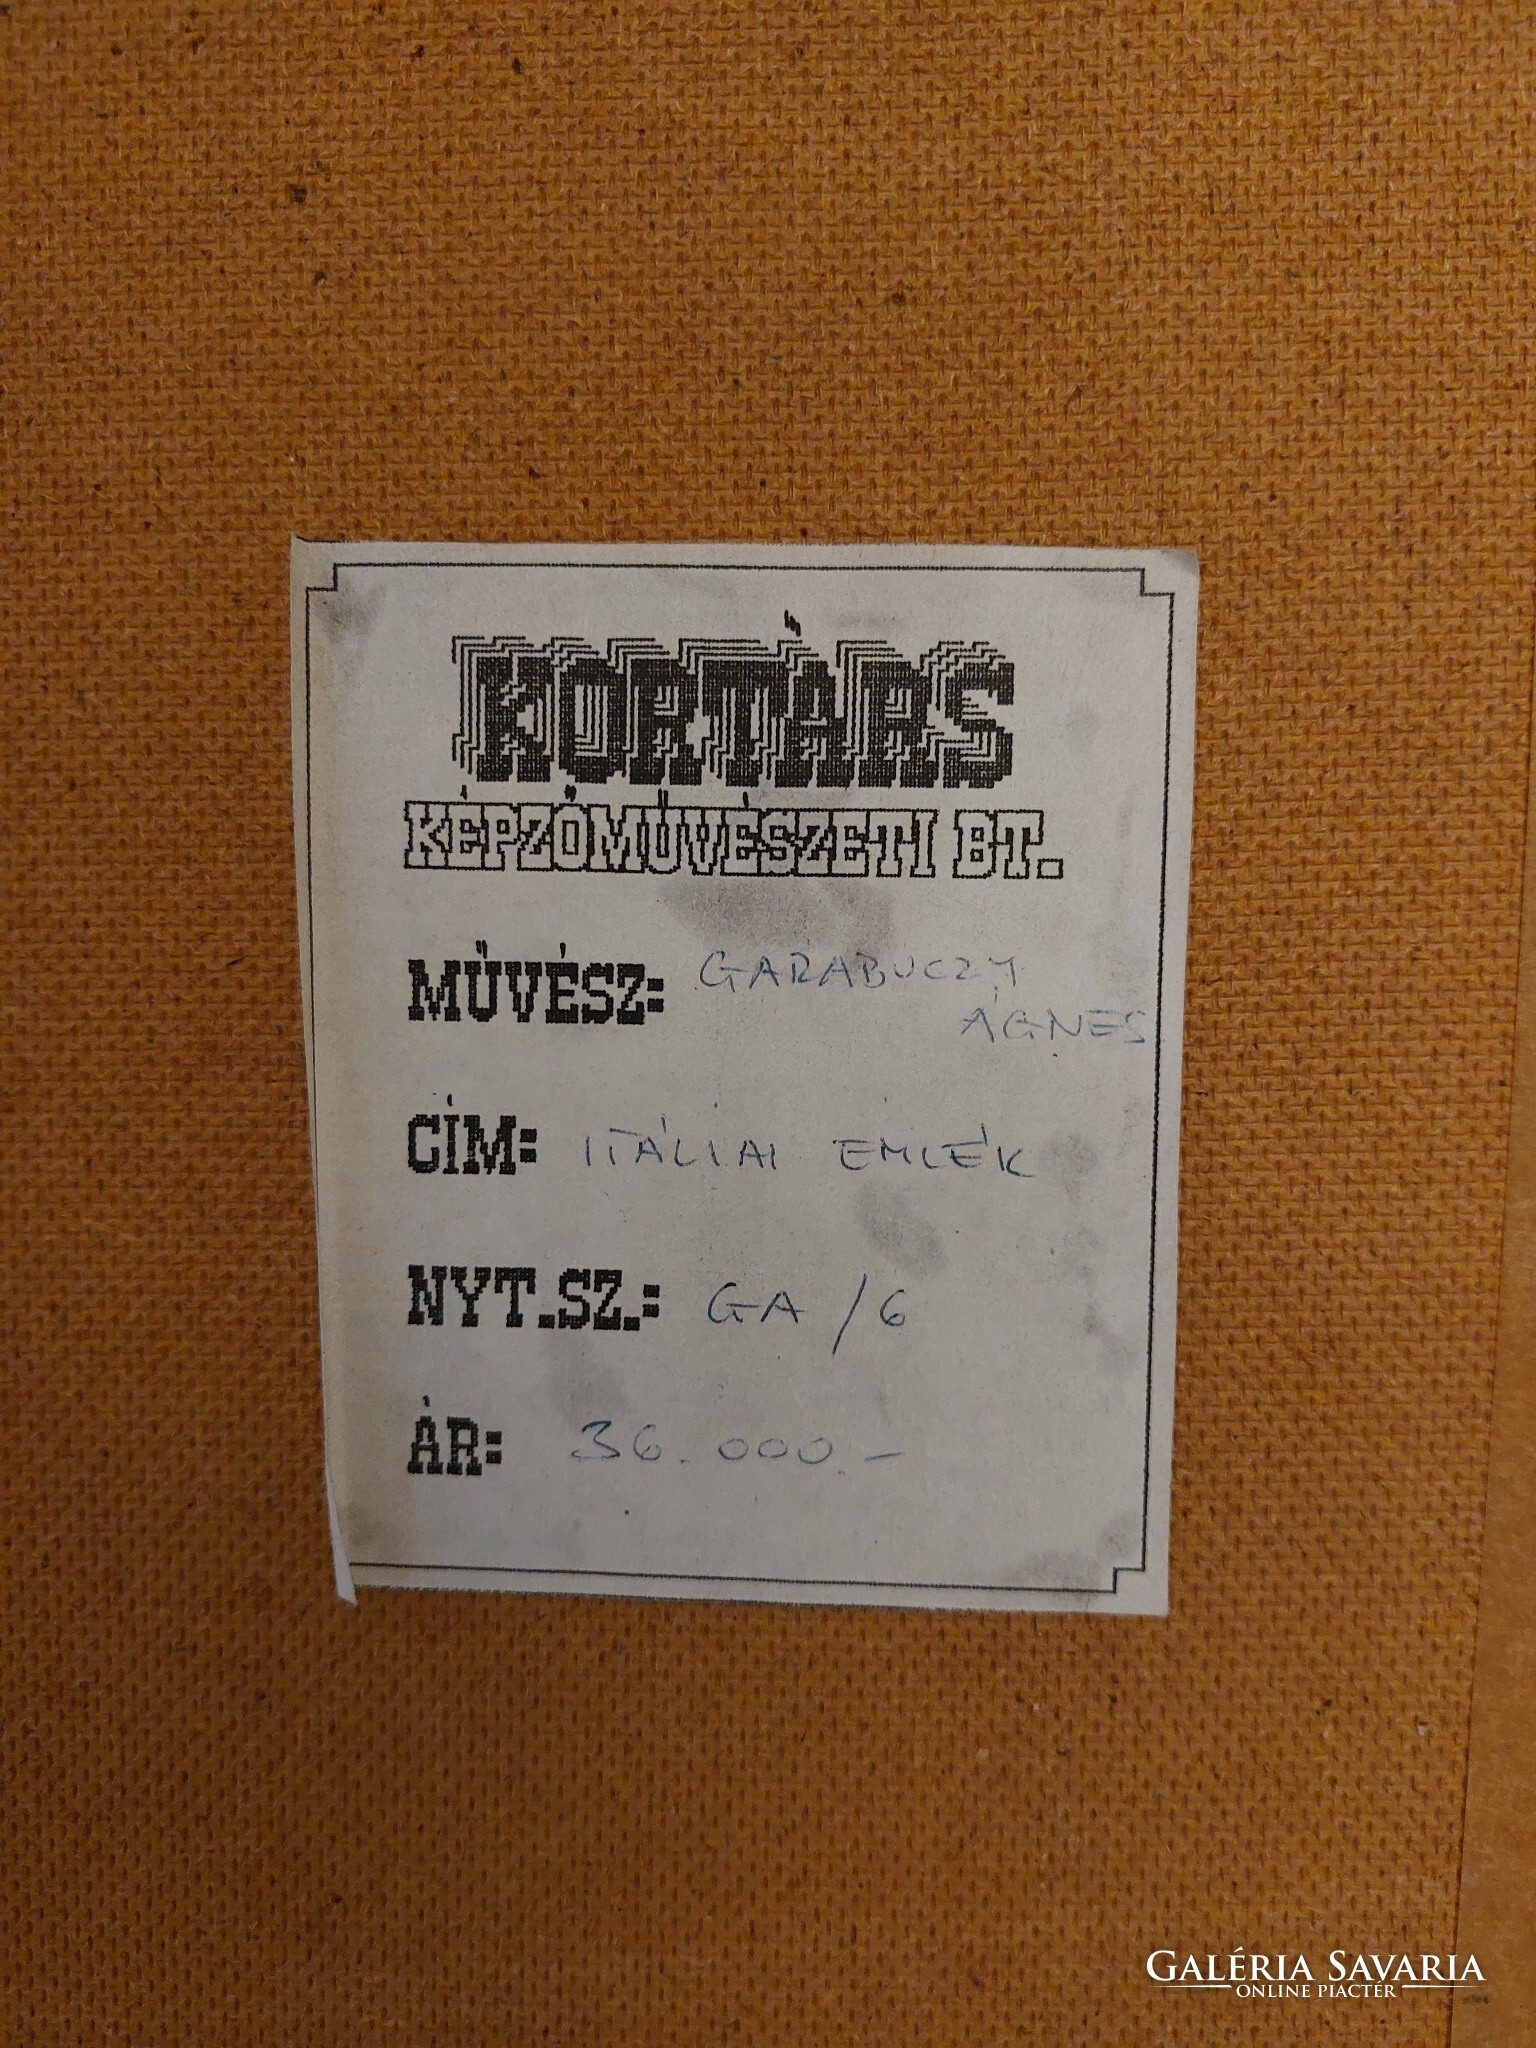 KORTÁRS
KÉPZŐMŰVÉSZETI BT.
MŰVÉSZ: GARABUCZY
ÁGNES
CÍM: ITÁLIAI EMLÉK
NYT.SZ.: GA / 6
ÁR: 36.000.-
GALÉRIA SAVARIA
ONLINE PIACTÉR